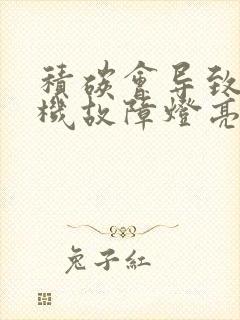 積碳會导致
機故障燈亮
兔子紅